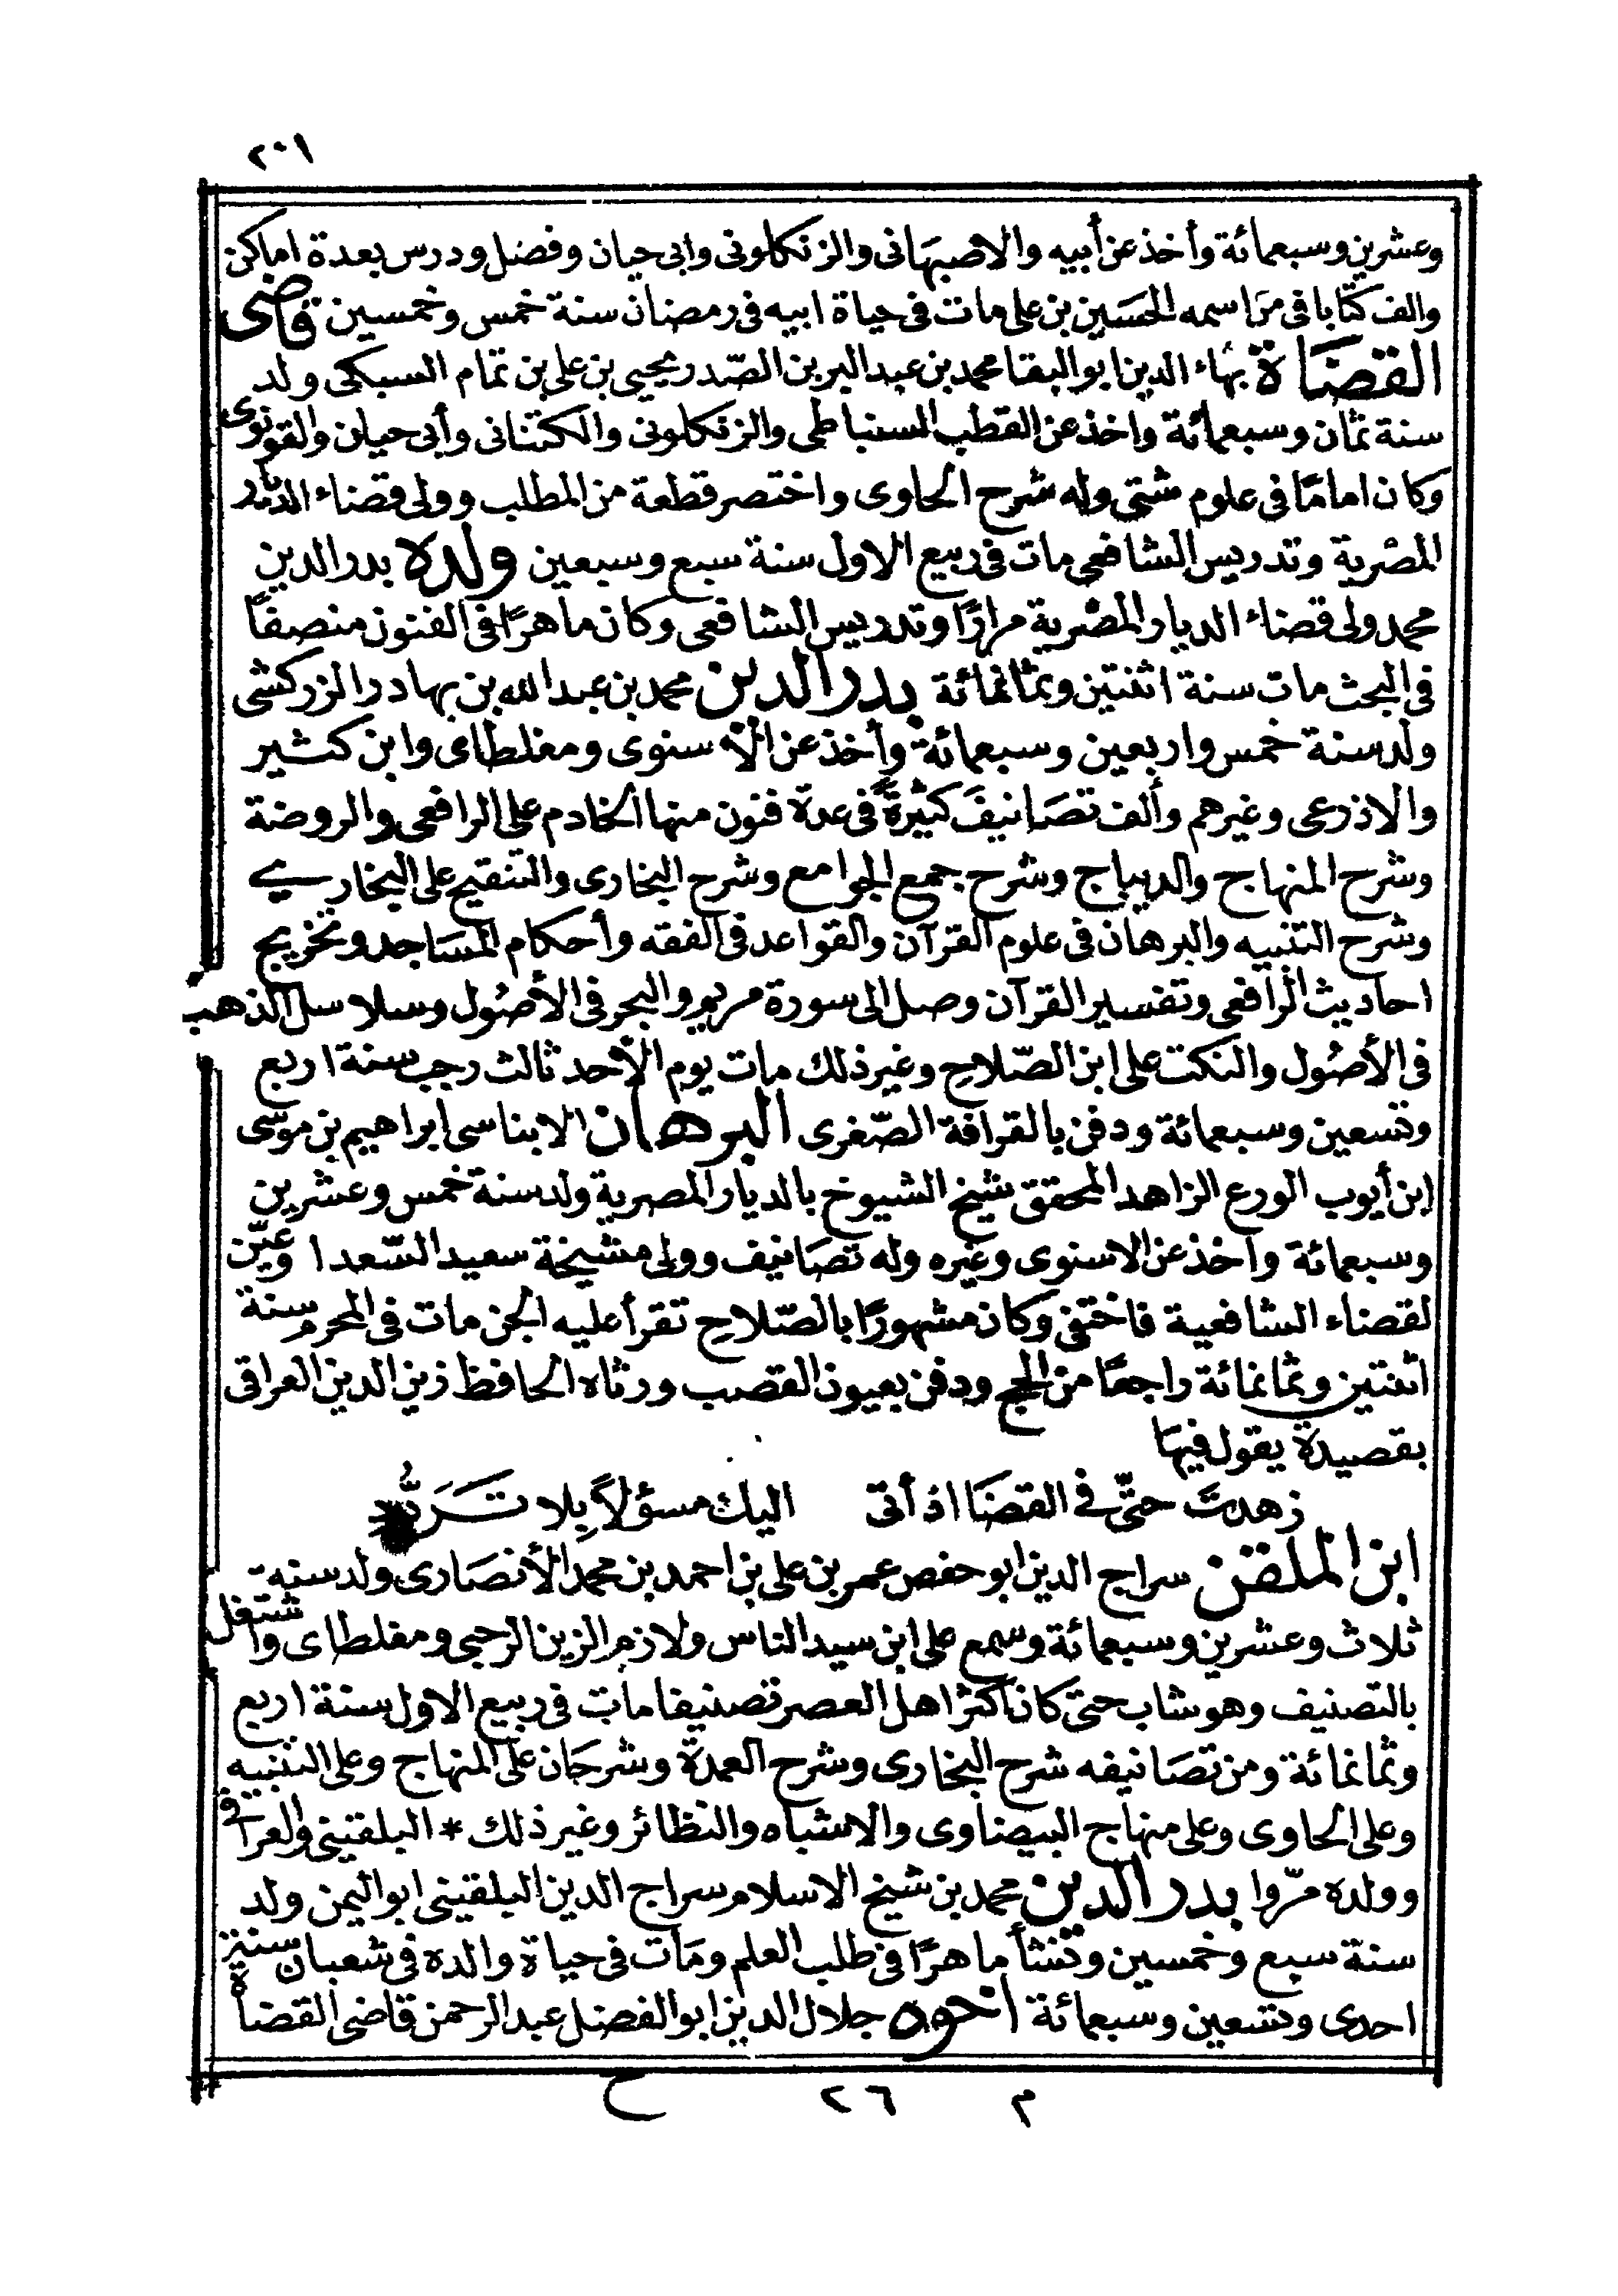 ٢٠١
وعشرين وسبعمائة وأخذ عن أبيه والاصبهانى والزنكلونى وابى حيان وفضل ودرس بعدة اماكن
والف كتابا فى من اسمه الحسين بن على مات فى حياة ابيه فى رمضان سنة خمس وخمسين قاضى
القضاة بهاء الدين ابو البقا محمد بن عبد البر بن الصّدر يحيى بن على بن تمام السبكى ولد
سنة ثمان وسبعمائة واخذ عن القطب السنباطى والزنكلونى والكتنانى وأبى حيان والقونوى
وكان امامًا فى علوم شتى وله شرح الحاوى واختصر قطعة من المطلب وولى قضاء الديار
المصرية وتدريس الشافعى مات فى ربيع الاول سنة سبع وسبعين ولده بدر الدين
محمد ولى قضاء الديار المصرية مرارًا وتدريس الشافعى وكان ماهرًا فى الفنون منصفًا
فى البحث مات سنة اثنتين وثمانمائة بدر الدين محمد بن عبد الله بن بهادر الزركشى
ولد سنة خمس واربعين وسبعمائة وأخذ عن الأسنوى ومغلطاى وابن كثير
والاذرعى وغيرهم وألف تصانيفَ كثيرةً فى عدة فنون منها الخادم على الرافعى والروضة
وشرح المنهاج والديباج وشرح جمع الجوامع وشرح البخارى والتنقيح على البخارى
وشرح التنبيه والبرهان فى علوم القرآن والقواعد فى الفقه وأحكام المساجد وتخريج
احاديث الرافعى وتفسير القرآن وصل الى سورة مريم والبحر فى الأصُول وسلاسل الذهب
فى الأصُول والنكت على ابن الصّلاح وغير ذلك مات يوم الأحد ثالث رجب سنة اربع
وتسعين وسبعمائة ودفن بالقرافة الصّغرى البرهان الابناسى ابراهيم بن موسى
ابن أيوب الورع الزاهد المحقق شيخ الشيوخ بالديار المصرية ولد سنة خمس وعشرين
وسبعمائة وأخذ عن الاسنوى وغيره وله تصانيف وولى مشيخة سعيد السّعدا وعيّن
لقضاء الشافعية فاختفى وكان مشهورًا بالصّلاح تقرأ عليه الجن مات فى المحرم سنة
اثنتين وثمانمائة راجعًا من الحج ودفن بعيون القصب ورثاه الحافظ زين الدين العراقى
بقصيدة يقول فيها
زهدت حتّى فى القضا اذ أتى اليك مسؤلاً بلا تَرَدُّدِ
ابن الملقن سراج الدين ابو حفص عمر بن على بن احمد بن محمد الأنصارى ولد سنة
ثلاث وعشرين وسبعمائة وسمع على ابن سيد الناس ولازم الزين الرحبى ومغلطاى واشتغل
بالتصنيف وهو شاب حتى كان اكثر اهل العصر تصنيفا مات فى ربيع الاول سنة اربع
وثمانمائة ومن تصانيفه شرح البخارى وشرح العمدة وشرحان على المنهاج وعلى التنبيه
وعلى الحاوى وعلى منهاج البيضاوى والاشباه والنظائر وغير ذلك * البلقينى والعراقى
وولده مرّوا بدر الدين محمد بن شيخ الاسلام سراج الدين البلقينى ابو اليمن ولد
سنة سبع وخمسين ونشأ ماهرًا فى طلب العلم ومات فى حياة والده فى شعبان سنة
احدى وتسعين وسبعمائة اخوه جلال الدين ابو الفضل عبد الرحمن قاضى القضاة
م ٢٦ ح